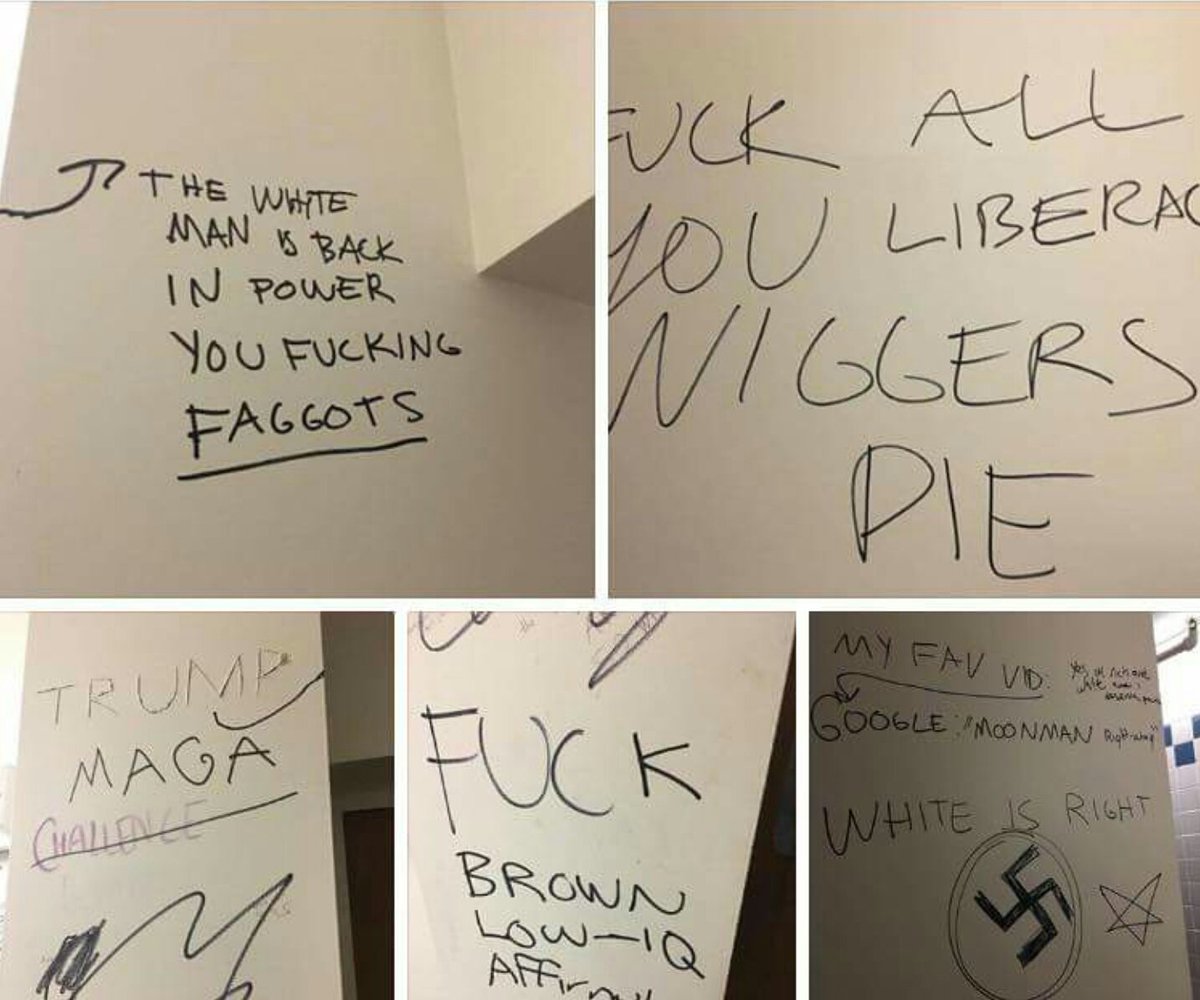 THE WHITE
MAN IS BACK
IN POWER
YOU FUCKING
FAGGOTS
FUCK ALL
YOU LIBERAL
NIGGERS
DIE
TRUMP
MAGA
CHALLENGE
FUCK
BROWN
LOW-IQ
MY FAV VID:
GOOGLE: "MOONMAN Right-wing"
WHITE IS RIGHT